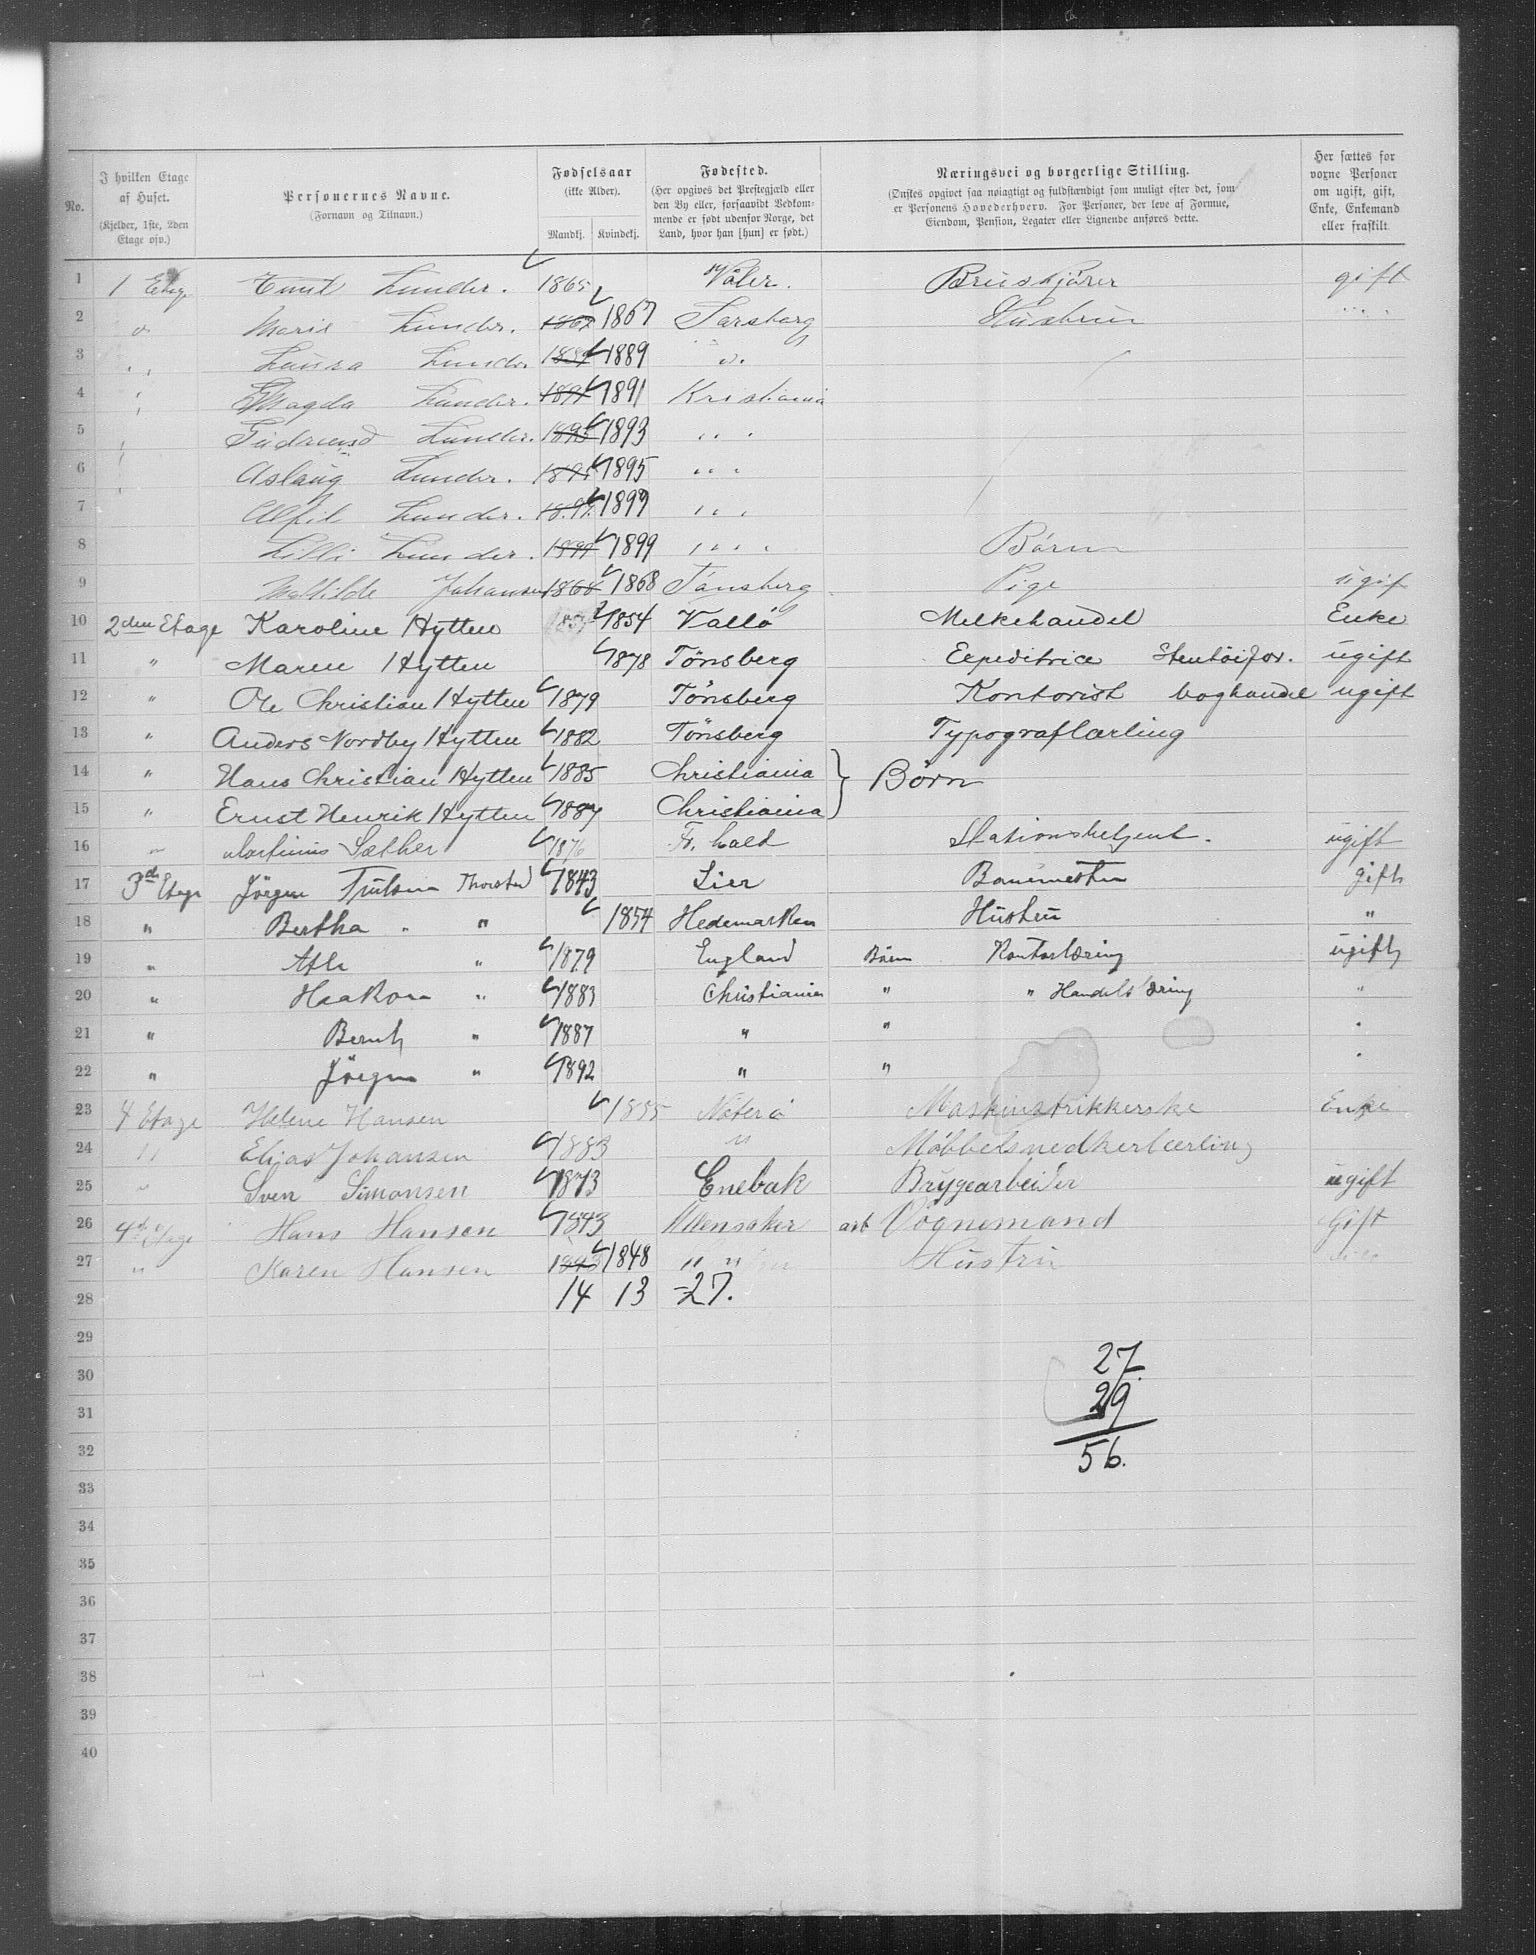 No. I hvilken Etage af Huset. (Kjelder, 1ste, 2den Etage osv.) Personernes Navne. (Fornavn og Tilnavn.) Fødselsaar (ikke Alder). Mandkj. Kvindekj. Fødested. (Her opgives det Prestegjæld eller den By eller, forsaavidt Vedkommende er født udenfor Norge, det Land, hvor han [hun] er født.) Næringsvei og borgerlige Stilling. (Ønskes opgivet saa nøiagtigt og fuldstændigt som muligt efter det, som er Personens Hovederhverv. For Personer, der leve af Formue, Eiendom, Pension, Legater eller Lignende anføres dette. Her sættes for voxne Personer om ugift, gift, Enke, Enkemand eller fraskilt.
1 1 Etag Emil Lunder. 1865 Våler. Bruskjører gift
2 Marie Lunder. 1867 1867 Sarsborg Hustrue
3 " Laura Lunder 1889 1889 "
4 " Magda Lunder. 1891 1891 Kristiania
5 " Lunder. 1893 1893 " "
6 " Aslaug Lunder. 1895 1895 " "
7 Lunder. 1897 1897 " "
8 Lilli Lunder. 1899 1899 " " Børn
9 Mathilde Johansen 1868 1868 Tønsberg Pige ugif
10 2den Etage Karoline Hytten 1854 1854 Vallø Melkehandel Enke
11 " Maren Hytten 1878 Tönsberg Expeditrice Stentöifor. ugift
12 " Ole Christian Hytten 1879 Tönsberg Kontorist boghandel ugift
13 " Anders Nordby Hytten 1882 Tönsberg Typograflærling
14 " Hans Christian Hytten 1885 Christiania } Börn
15 " Ernst Henrik Hytten 1887 Christiania
16 " Martinius Sæther 1876 Fr. hald Stationsbetjent. ugift
17 3de Etage Jörgen Thorstad 1843 Lier Baumester gift
18 " Bertha " " 1854 Hedemarken Hustru "
19 " Atle " 1879 England Börn Kontorlæring ugift
20 " Haakon " 1883 Christiania " " Handelslæring "
21 " Bernt " 1887 " "
22 " Jörgen " 1892 " "
23 4 Etage Helene Hansen 1855 Nøterø Maskinstrikkerske Enke
24 " Elias Johansen 1883 " Møbbelsnedkerlærling
25 " Sven Simonsen 1873 Enebak Brygearbeider ugift
26 4de Etage Hans Hansen 1843 Ullensaker arb Vognemand Gift
27 " Karen Hansen 1848 1848 " " Hustru
28 14 13 -27.
29
30 27.
31 29
32 56.
33
34
35
36
37
38
39
40